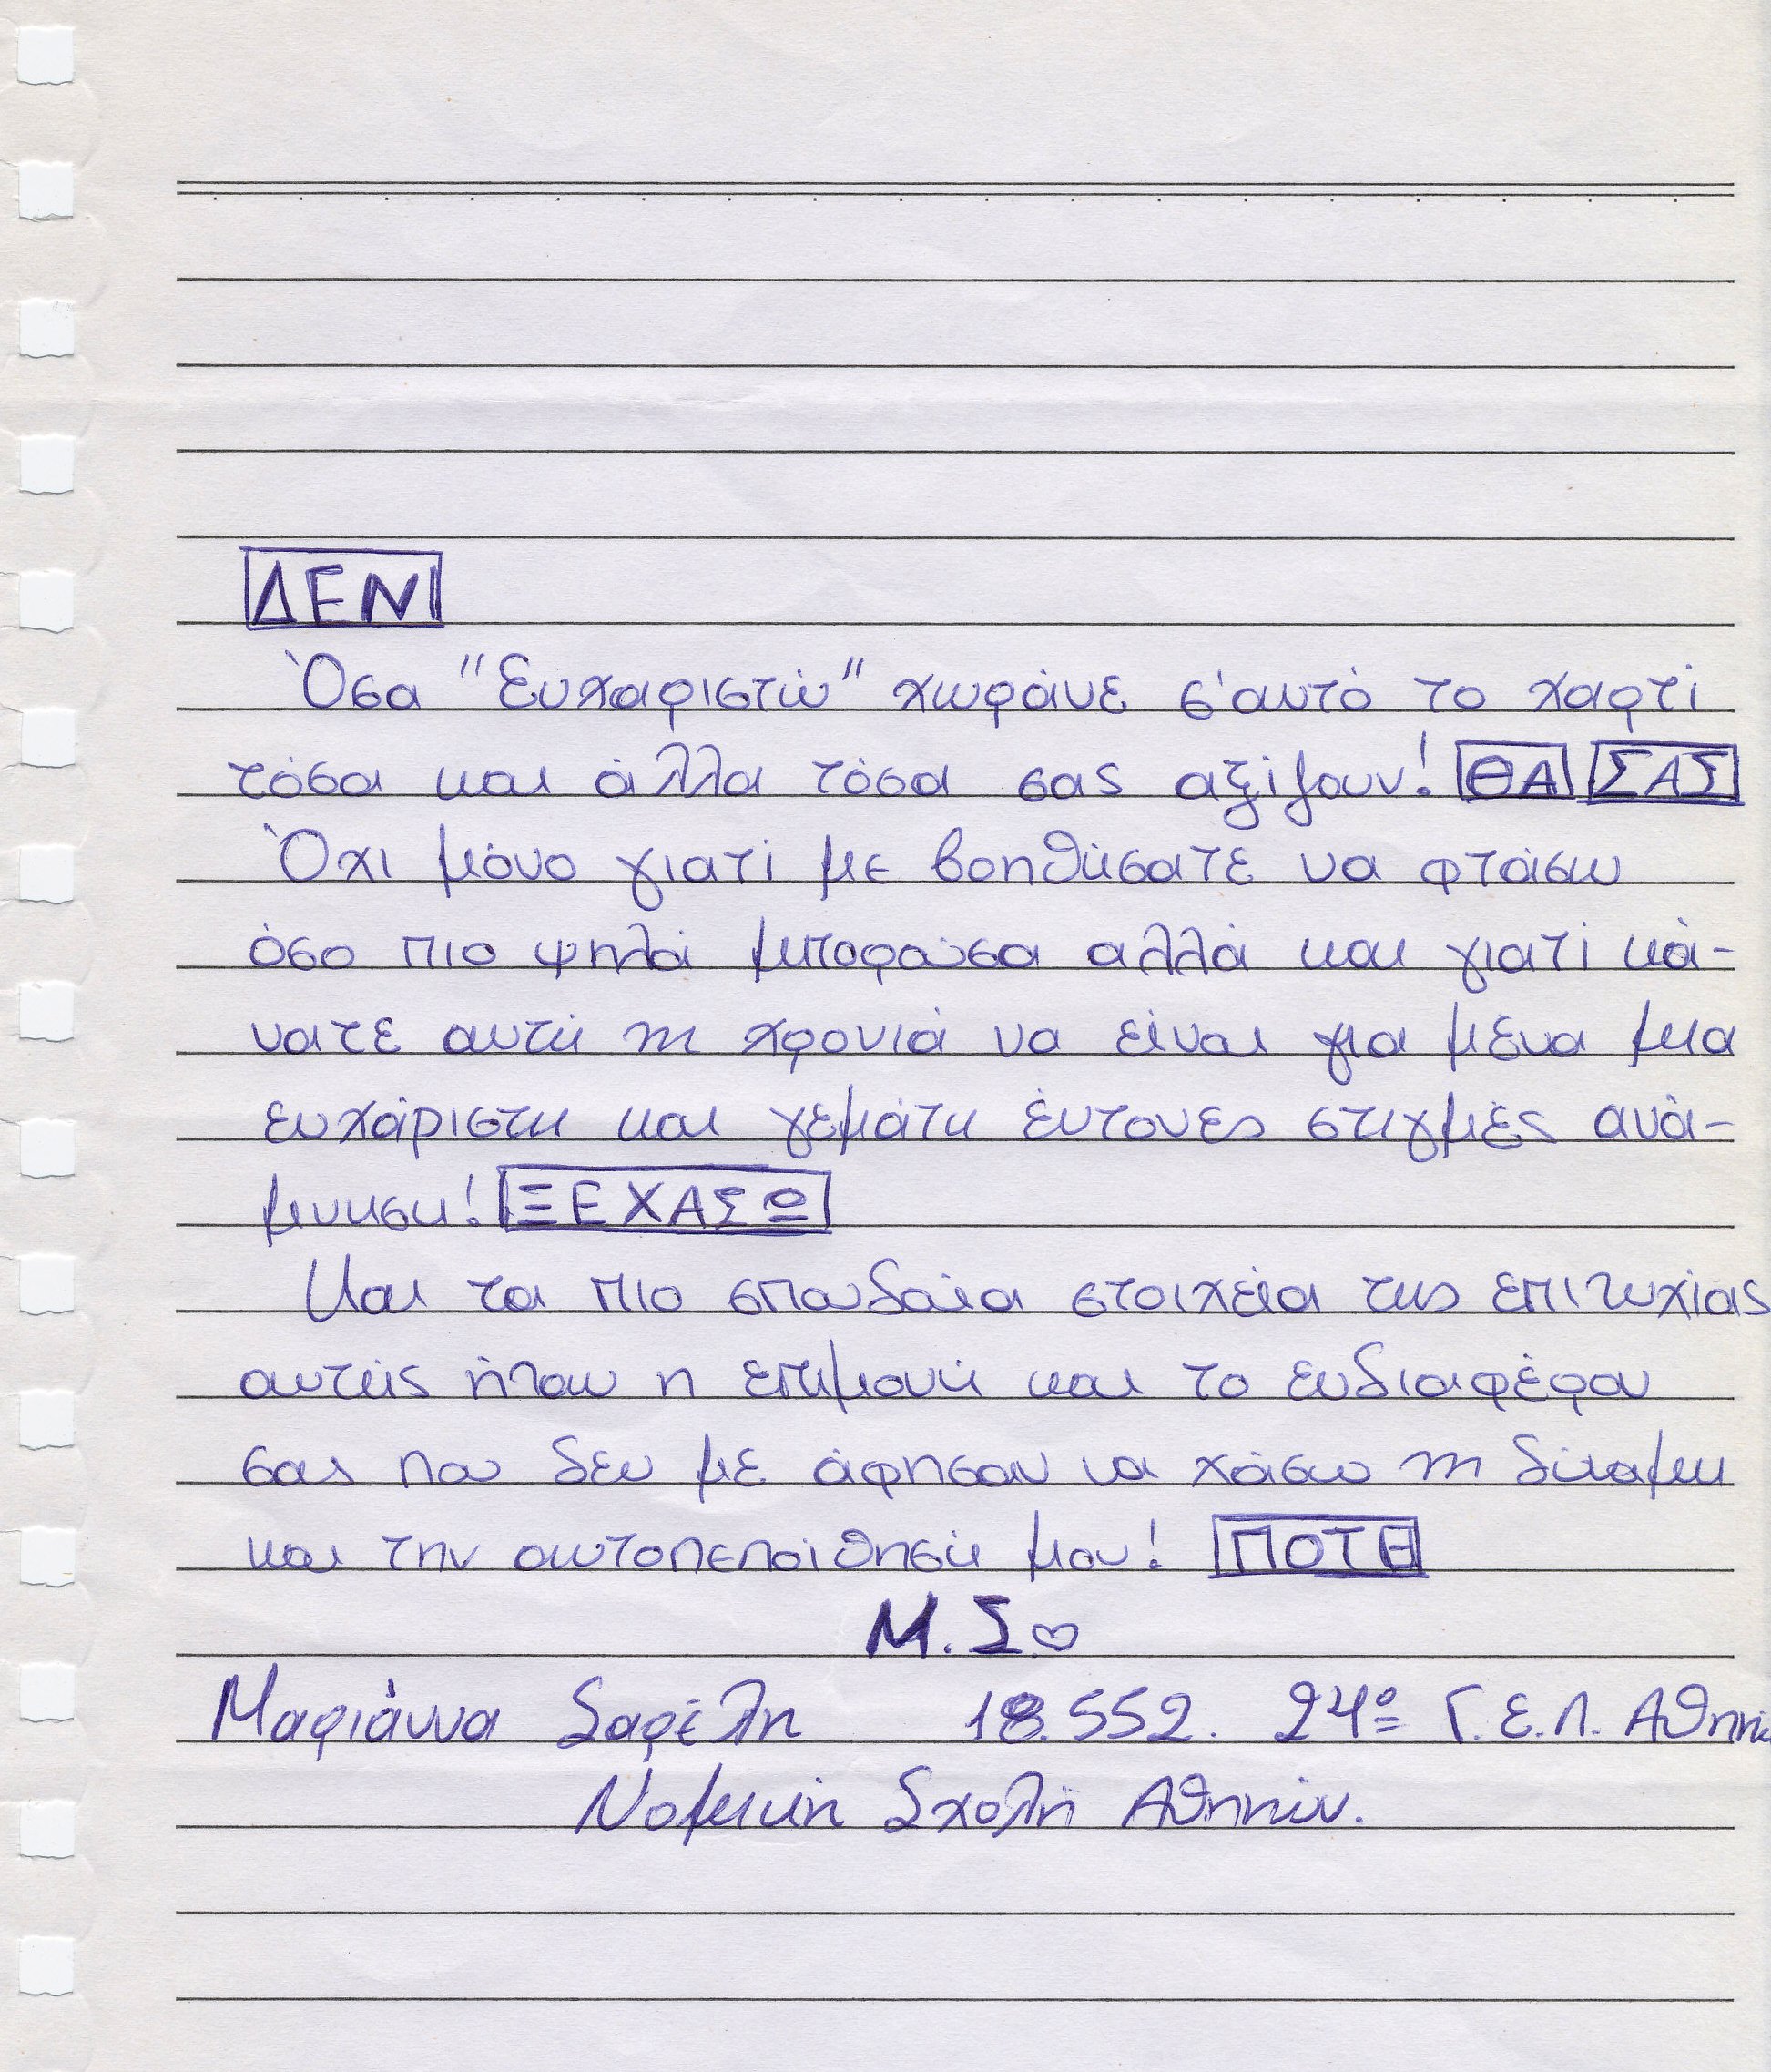 ΔΕΝ
Όσα "Ευχαριστώ" χωράνε σ'αυτό το χαρτί
τόσα και άλλα τόσα σας αξίζουν! ΘΑ ΣΑΣ
Όχι μόνο γιατί με βοηθήσατε να φτάσω
όσο πιο ψηλά μπορούσα αλλά και γιατί κά-
νατε αυτή τη χρονιά να είναι για μένα μια
ευχάριστη και γεμάτη έντονες στιγμές ανά-
μνηση! ΞΕΧΑΣΩ
Και τα πιο σπουδαία στοιχεία της επιτυχίας
αυτής ήταν η επιμονή και το ενδιαφέρον
σας που δεν με άφησαν να χάσω τη δύναμη
και την αυτοπεποίθησή μου! ΠΟΤΕ
Μ.Σ♡
Μαριάννα Σαρέλη 18.552. 24º Γ.Ε.Λ.
Νομική Σχολή Αθηνών.